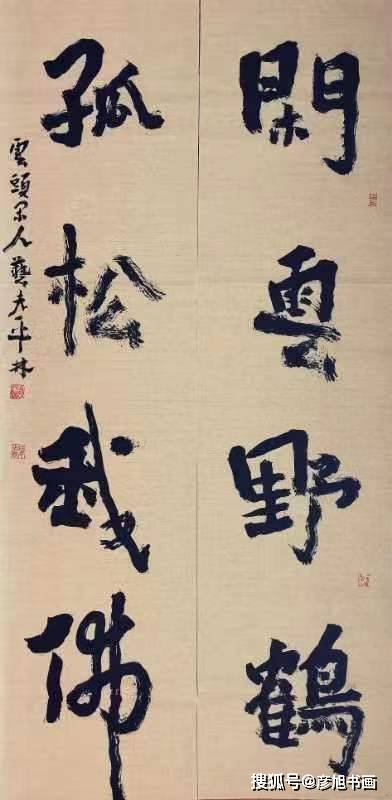 閑雲野鶴
孤松我佛
雲頭人藝平林
搜狐号@彦旭书画